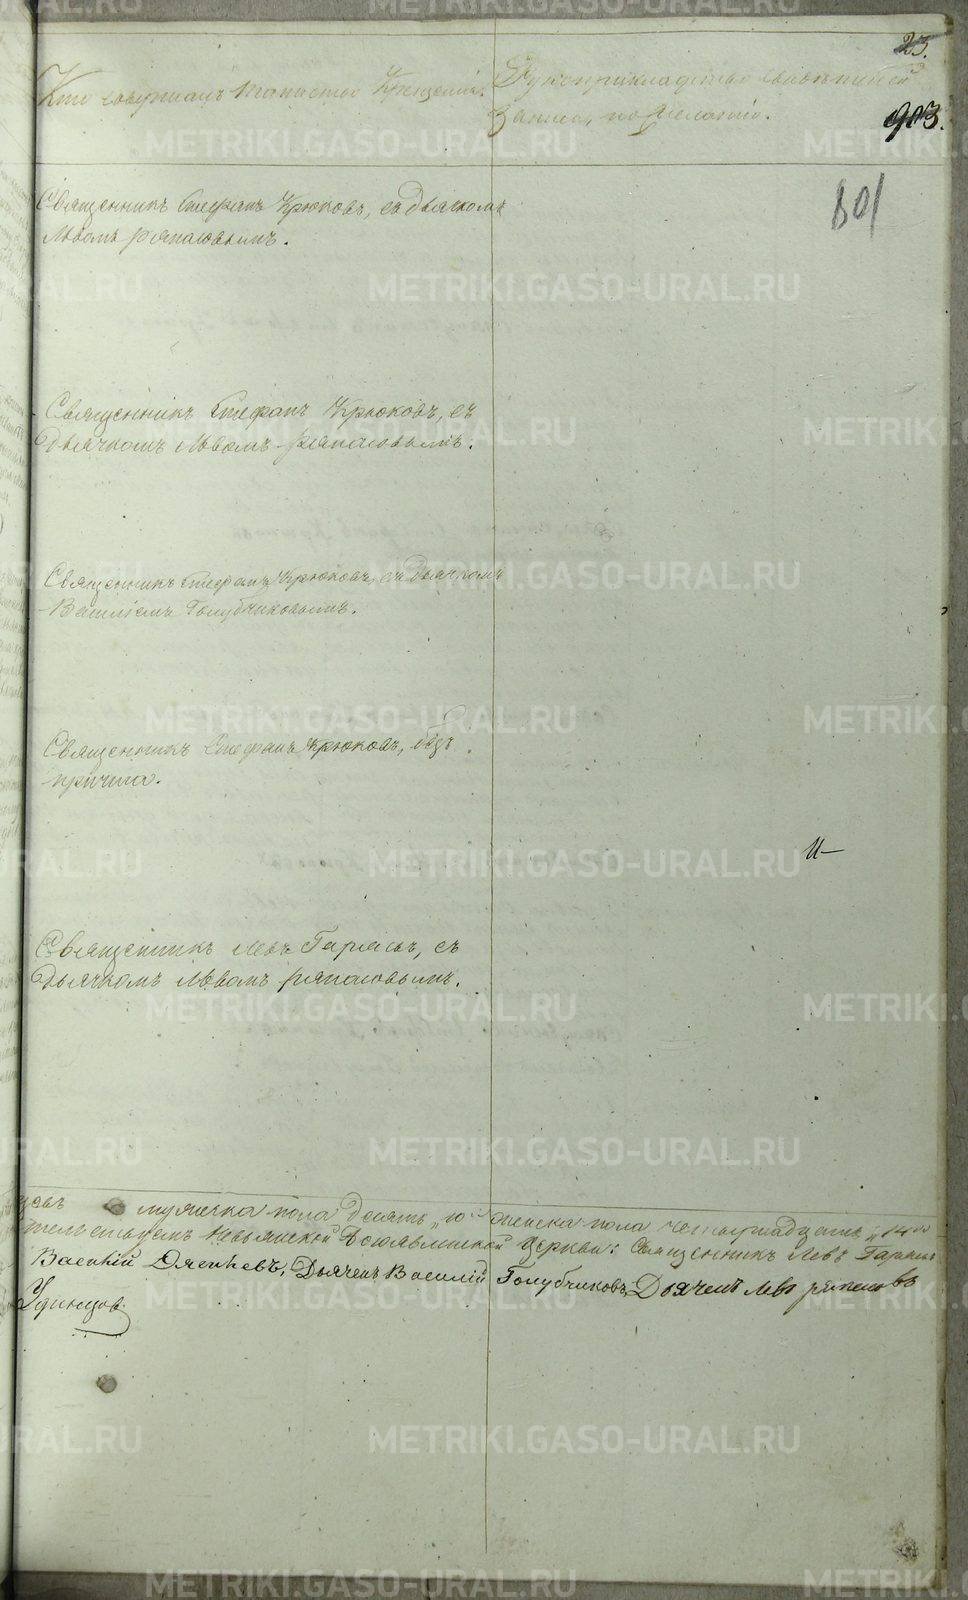 23.
903.
801
Кто совершалъ таинство Крещенія.
Рукоприкладство свидетелей
записи, по желанію.
Священникъ Стефанъ Крюковъ, съ дьячкомъ
Львомъ ряпасовымъ.
Священникъ Стефанъ Крюковъ, съ
Дьячкомъ Львомъ ряпасовымъ.
Священникъ Стефанъ Крюковъ, съ Дьячкомъ
Василіемъ Голубчиковымъ.
Священникъ Стефанъ Крюковъ, безъ
причта.
Священникъ Левъ Гаряевъ, съ
Дьячкомъ Львомъ ряпасовымъ.
мужеска пола десять „10“ женска пола четырнадцать „14“
Невьянской Богоявленской Церкви: Священникъ Левъ
Василій Дьячекъ Василій Голубчиковъ, Дьячекъ Левъ ряпасовъ
Удинцов.
METRIKI.GASO-URAL.RU